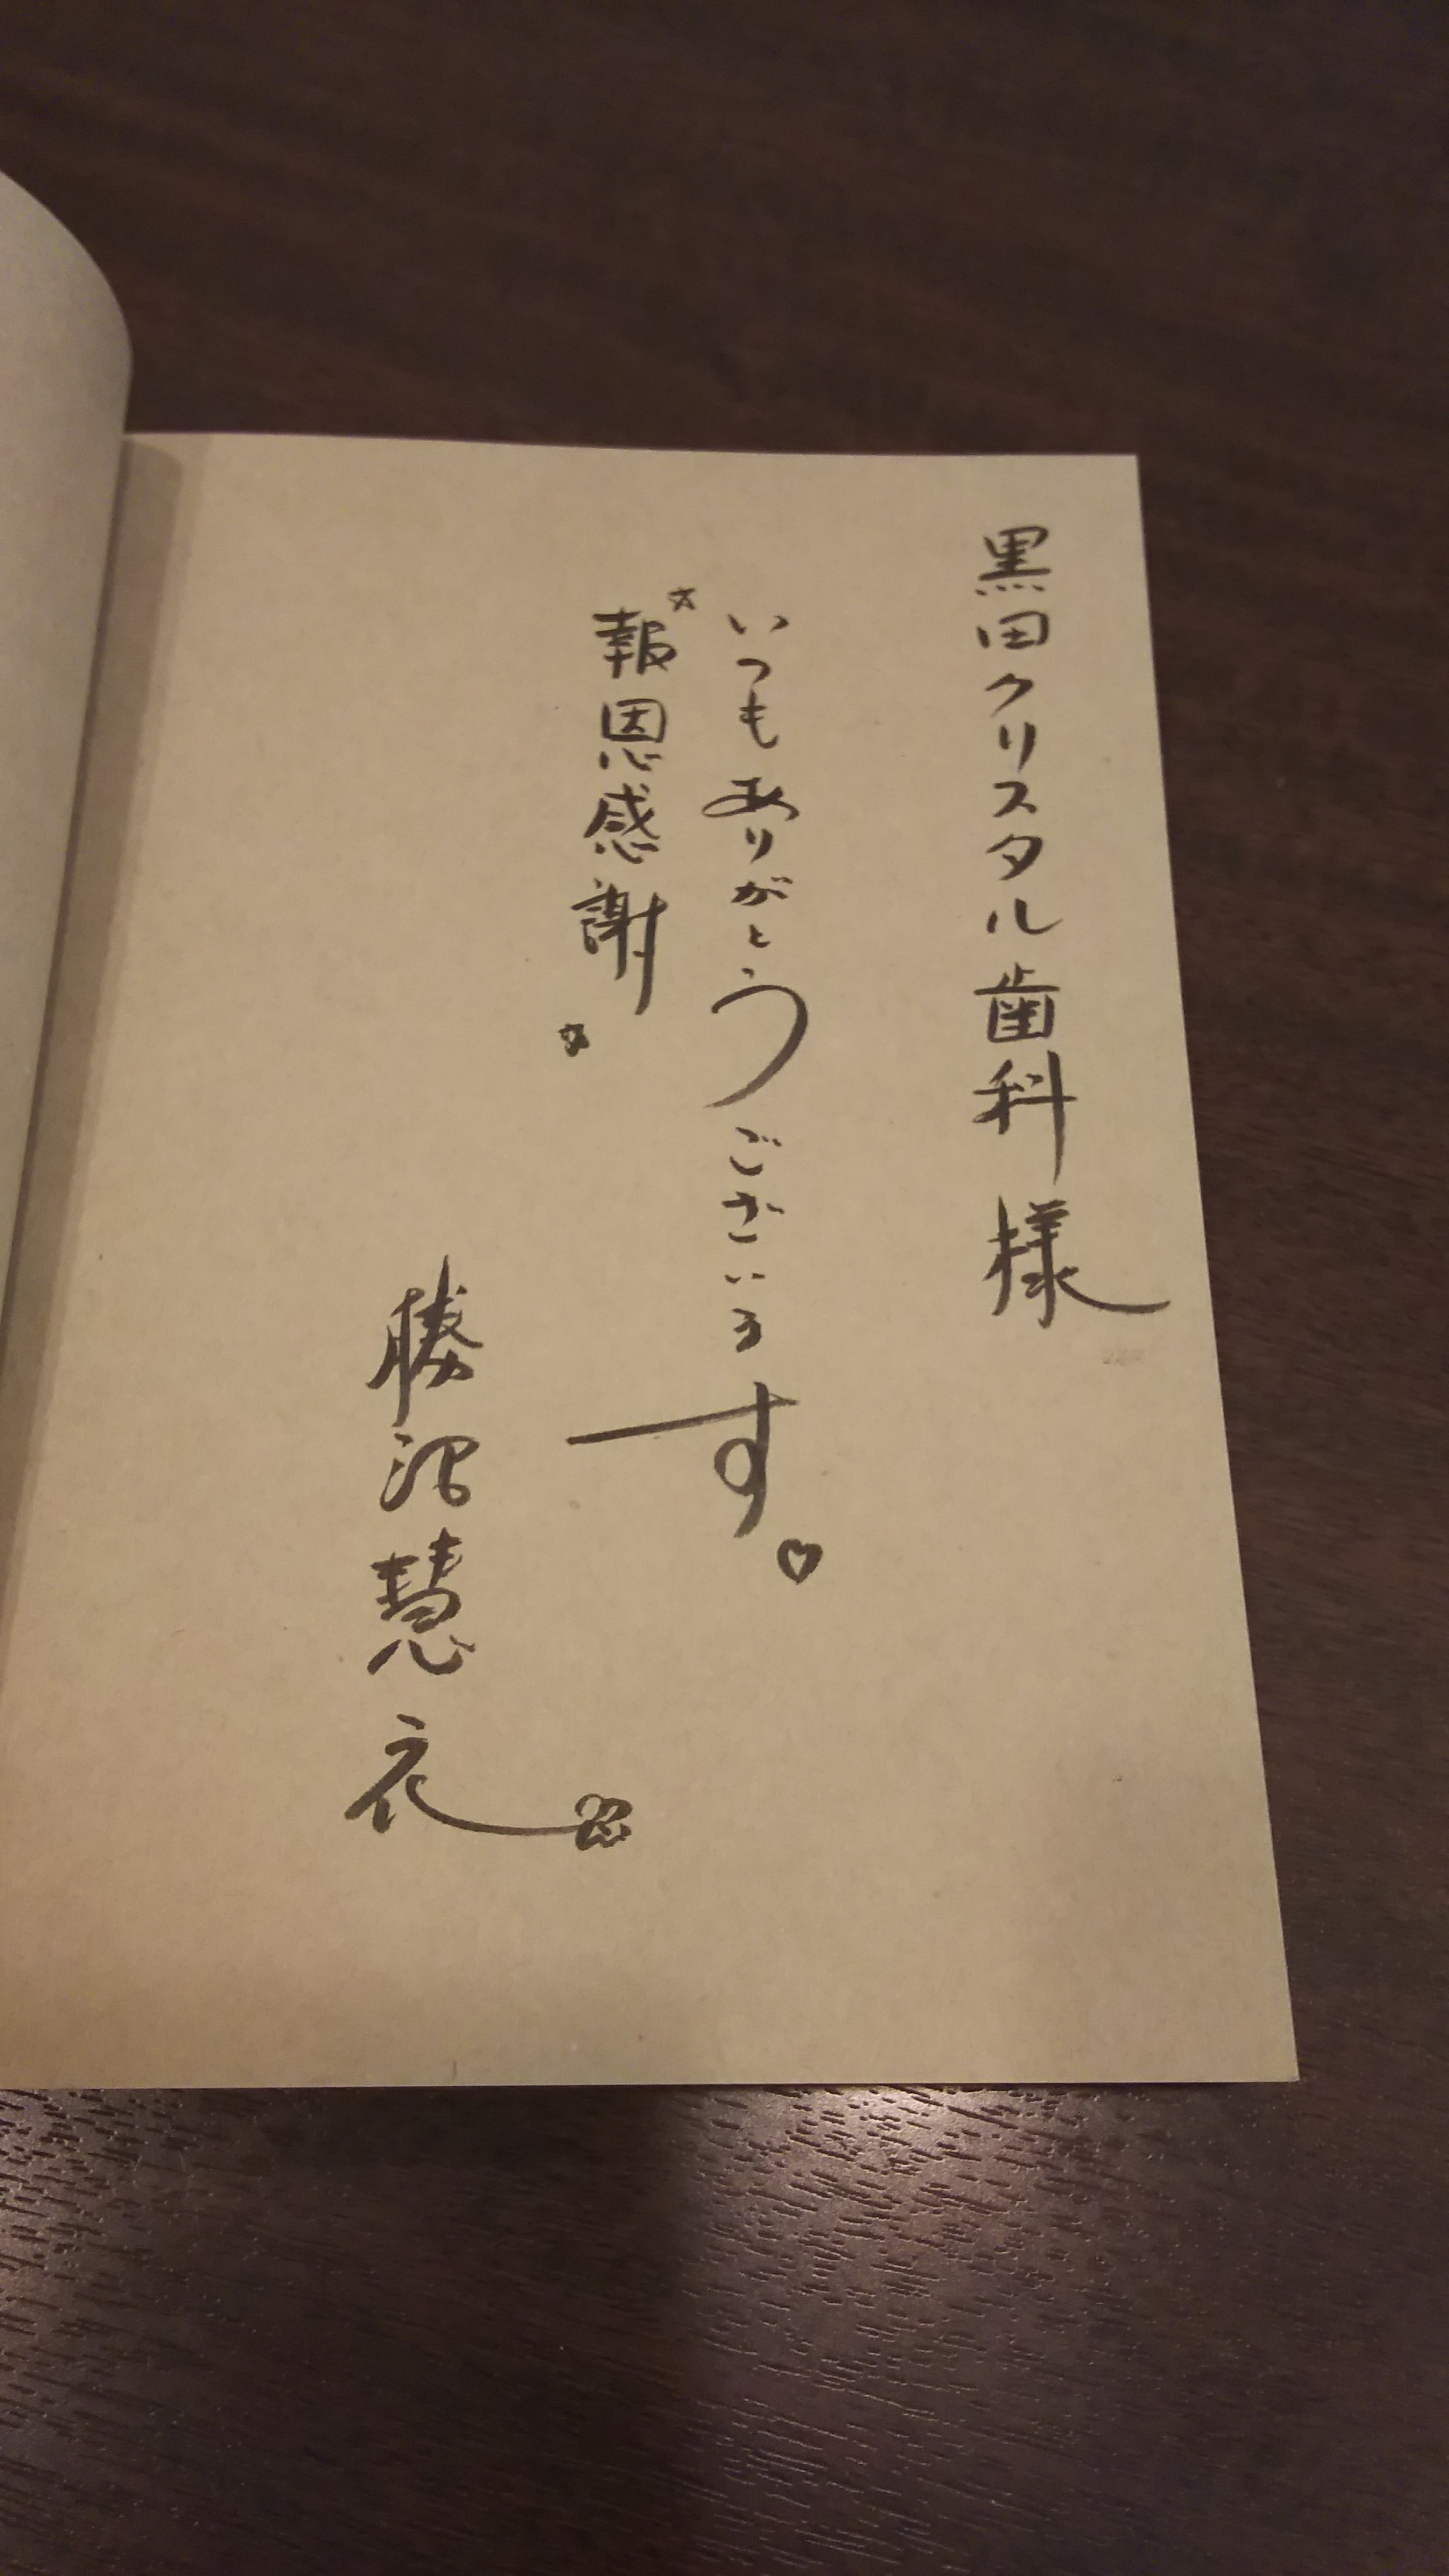 黒田クリスタル歯科様
いつもありがとうございます♡
報恩感謝
勝沼慧衣